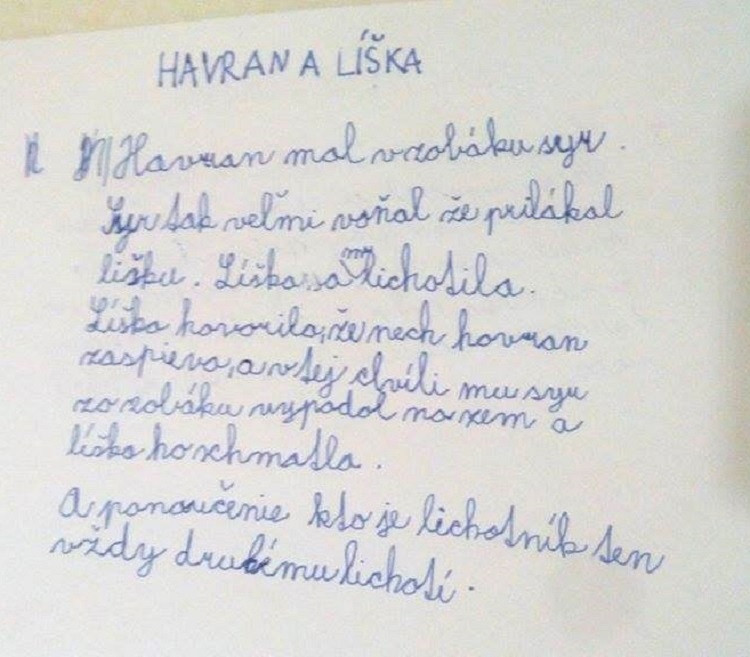 HAVRAN A LÍŠKA
Havran mal v zobáku syr.
Syr tak veľmi voňal že prilákal
lišku. Líška sa mu lichotila.
Líška hovorila, že nech havran
zaspieva, a v tej chvíli mu syr
zo zobáku vypadol na zem a
líška ho schmatla.
A ponaučenie kto je lichotník ten
vždy druhému lichotí.